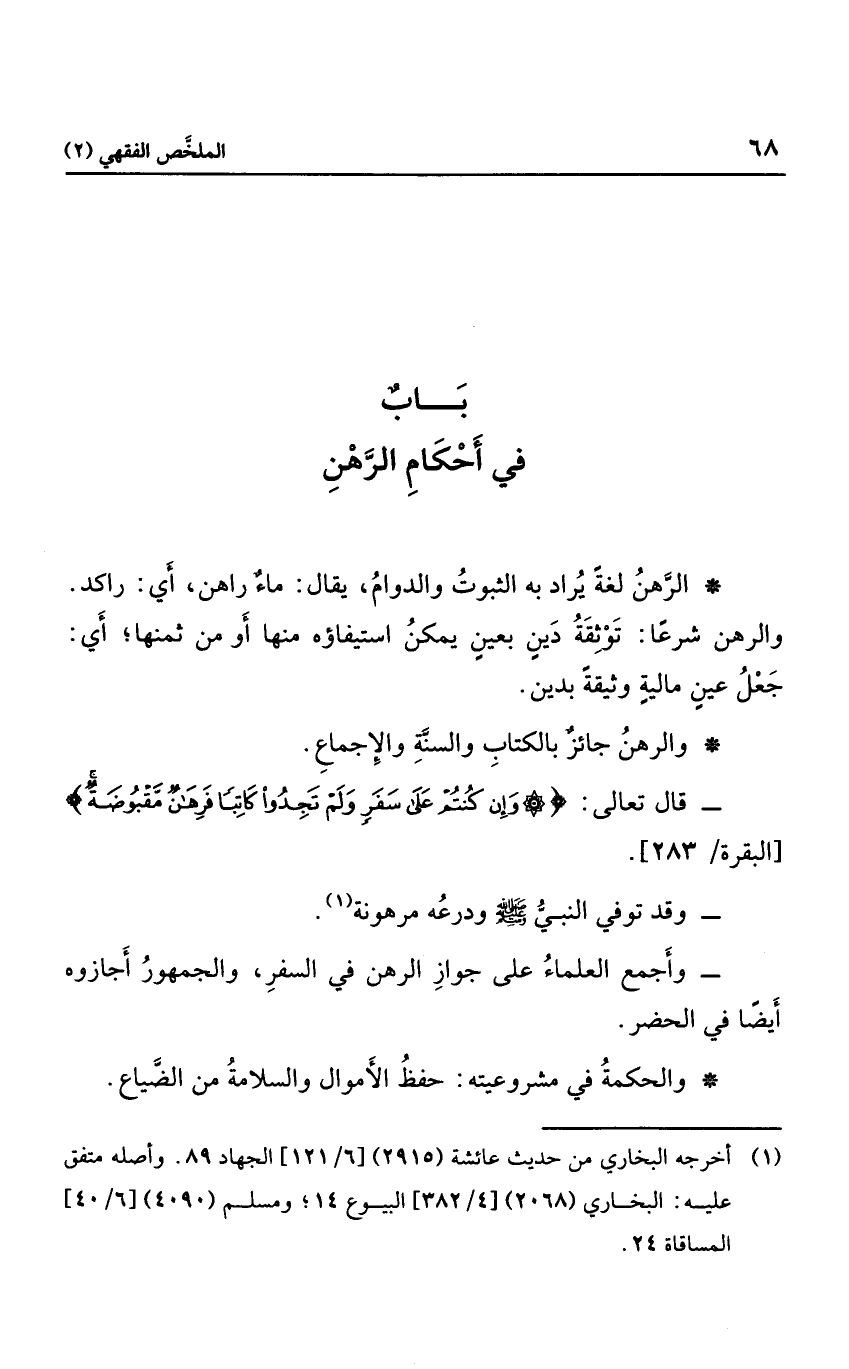 ٦٨ الملخَّص الفقهي (٢)
بَـــابٌ
في أَحْكَامِ الرَّهْنِ
* الرَّهنُ لغةً يُراد به الثبوتُ والدوامُ، يقال: ماءٌ راهن، أَي: راكد.
والرهن شرعًا: تَوْثِقَةُ دَينٍ بعينٍ يمكنُ استيفاؤه منها أَو من ثمنها؛ أَي:
جَعْلُ عينٍ ماليةٍ وثيقةً بدين.
* والرهنُ جائزٌ بالكتابِ والسنَّةِ والإجماعِ.
ـ قال تعالى: ﴿۞ وَإِن كُنتُمْ عَلَىٰ سَفَرٍ وَلَمْ تَجِدُوا۟ كَاتِبًا فَرِهَٰنٌ مَّقْبُوضَةٌ ۖ﴾
[البقرة/ ٢٨٣].
ـ وقد توفي النبـيُّ ﷺ ودرعُه مرهونة(١).
ـ وأَجمع العلماءُ على جوازِ الرهن في السفرِ، والجمهورُ أَجازوه
أَيضًا في الحضر.
* والحكمةُ في مشروعيته: حفظُ الأَموال والسلامةُ من الضَّياع.
(١) أخرجه البخاري من حديث عائشة (٢٩١٥) [٦/ ١٢١] الجهاد ٨٩. وأصله متفق
عليـه: البخـاري (٢٠٦٨) [٤/ ٣٨٢] البيـوع ١٤؛ ومسلـم (٤٠٩٠) [٦/ ٤٠]
المساقاة ٢٤.